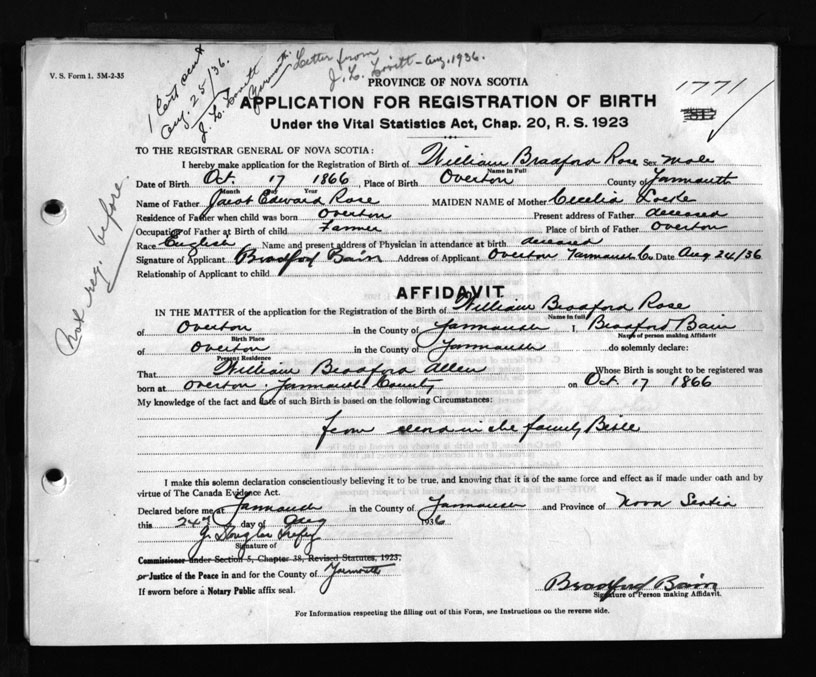 V. S. Form 1. 5M-2-35
1 Cert sent
Aug. 25/36.
J. L. Lovitt
Letter from
J. L. Lovitt - Aug. 1936.
PROVINCE OF NOVA SCOTIA
1771
APPLICATION FOR REGISTRATION OF BIRTH
Under the Vital Statistics Act, Chap. 20, R. S. 1923
TO THE REGISTRAR GENERAL OF NOVA SCOTIA:
I hereby make application for the Registration of Birth of William Bradford Rose Sex male
Name in Full
Date of Birth Oct. 17 1866, Place of Birth Overton County of Yarmouth
Month Day Year
Name of Father Jacob Edward Rose MAIDEN NAME of Mother Cecelia
Residence of Father when child was born Overton Present address of Father deceased
Occupation of Father at Birth of child Farmer Place of birth of Father Overton
Race English Name and present address of Physician in attendance at birth deceased
Signature of Applicant Bradford Bain Address of Applicant Overton Yarmouth Co. Date Aug 24/36
Relationship of Applicant to child
Not reg. before.
AFFIDAVIT
IN THE MATTER of the application for the Registration of the Birth of William Bradford Rose
Name in full
of Overton in the County of Yarmouth I, Bradford Bain
Birth Place Name of person making Affidavit
of Overton in the County of Yarmouth do solemnly declare:
Present Residence
That William Bradford Allen Whose Birth is sought to be registered was
born at Overton Yarmouth County on Oct. 17 1866
My knowledge of the fact and date of such Birth is based on the following Circumstances:
from record in the family Bible
I make this solemn declaration conscientiously believing it to be true, and knowing that it is of the same force and effect as if made under oath and by
virtue of The Canada Evidence Act.
Declared before me at Yarmouth in the County of Yarmouth and Province of Nova Scotia
this 24th day of Aug 1936
J. Douglas
Signature of
Commissioner under Section 5, Chapter 38, Revised Statutes, 1923,
or Justice of the Peace in and for the County of Yarmouth
If sworn before a Notary Public affix seal.
Bradford Bain
Signature of Person making Affidavit.
For Information respecting the filling out of this Form, see Instructions on the reverse side.